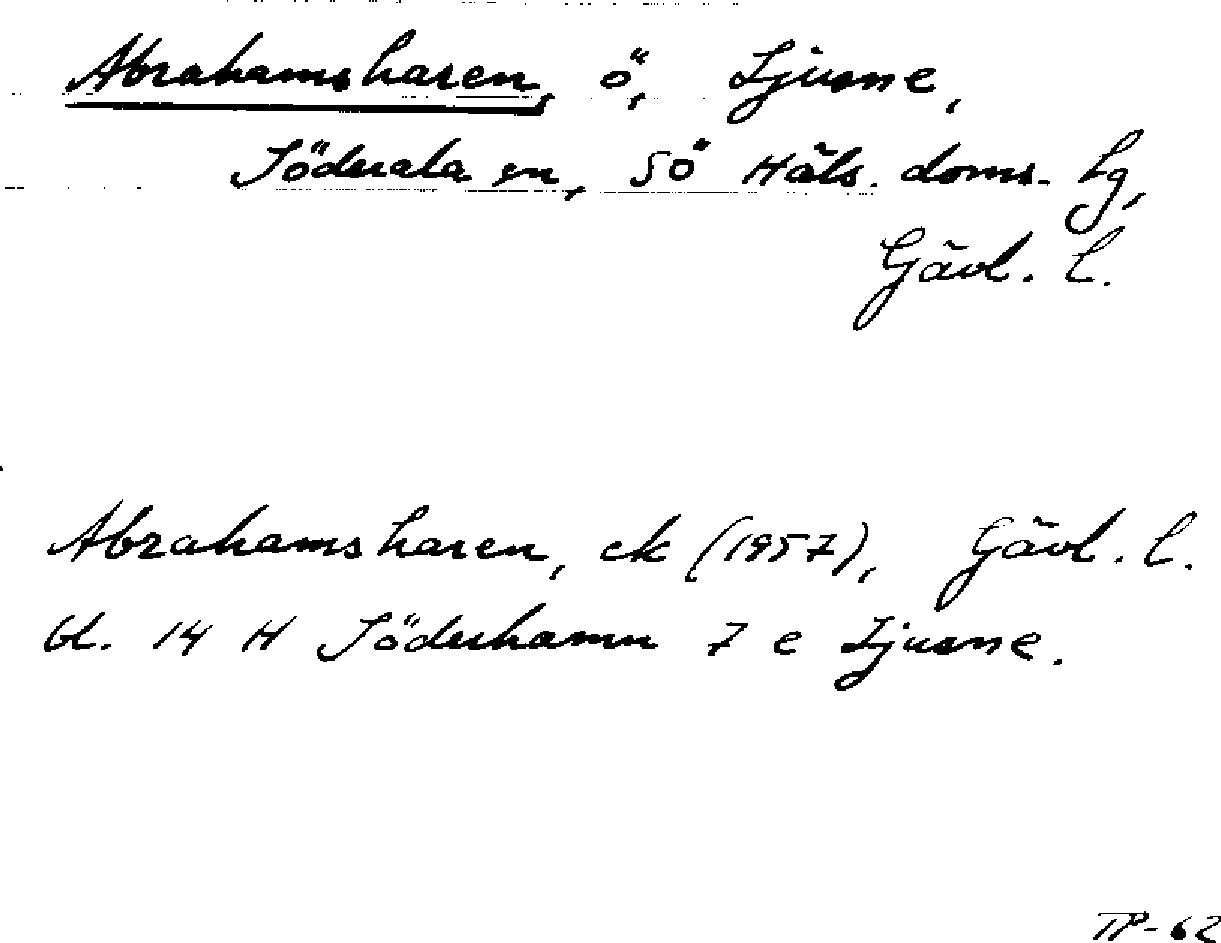 Abrahamsharen, ö, Ljusne,
Söderala sn, Sö Häls. doms. Lg,
Gävl. l.
Abrahamsharen, ek (1957), Gävl. l.
bl. 14 H Söderhamn 7 e Ljusne.
TP-62